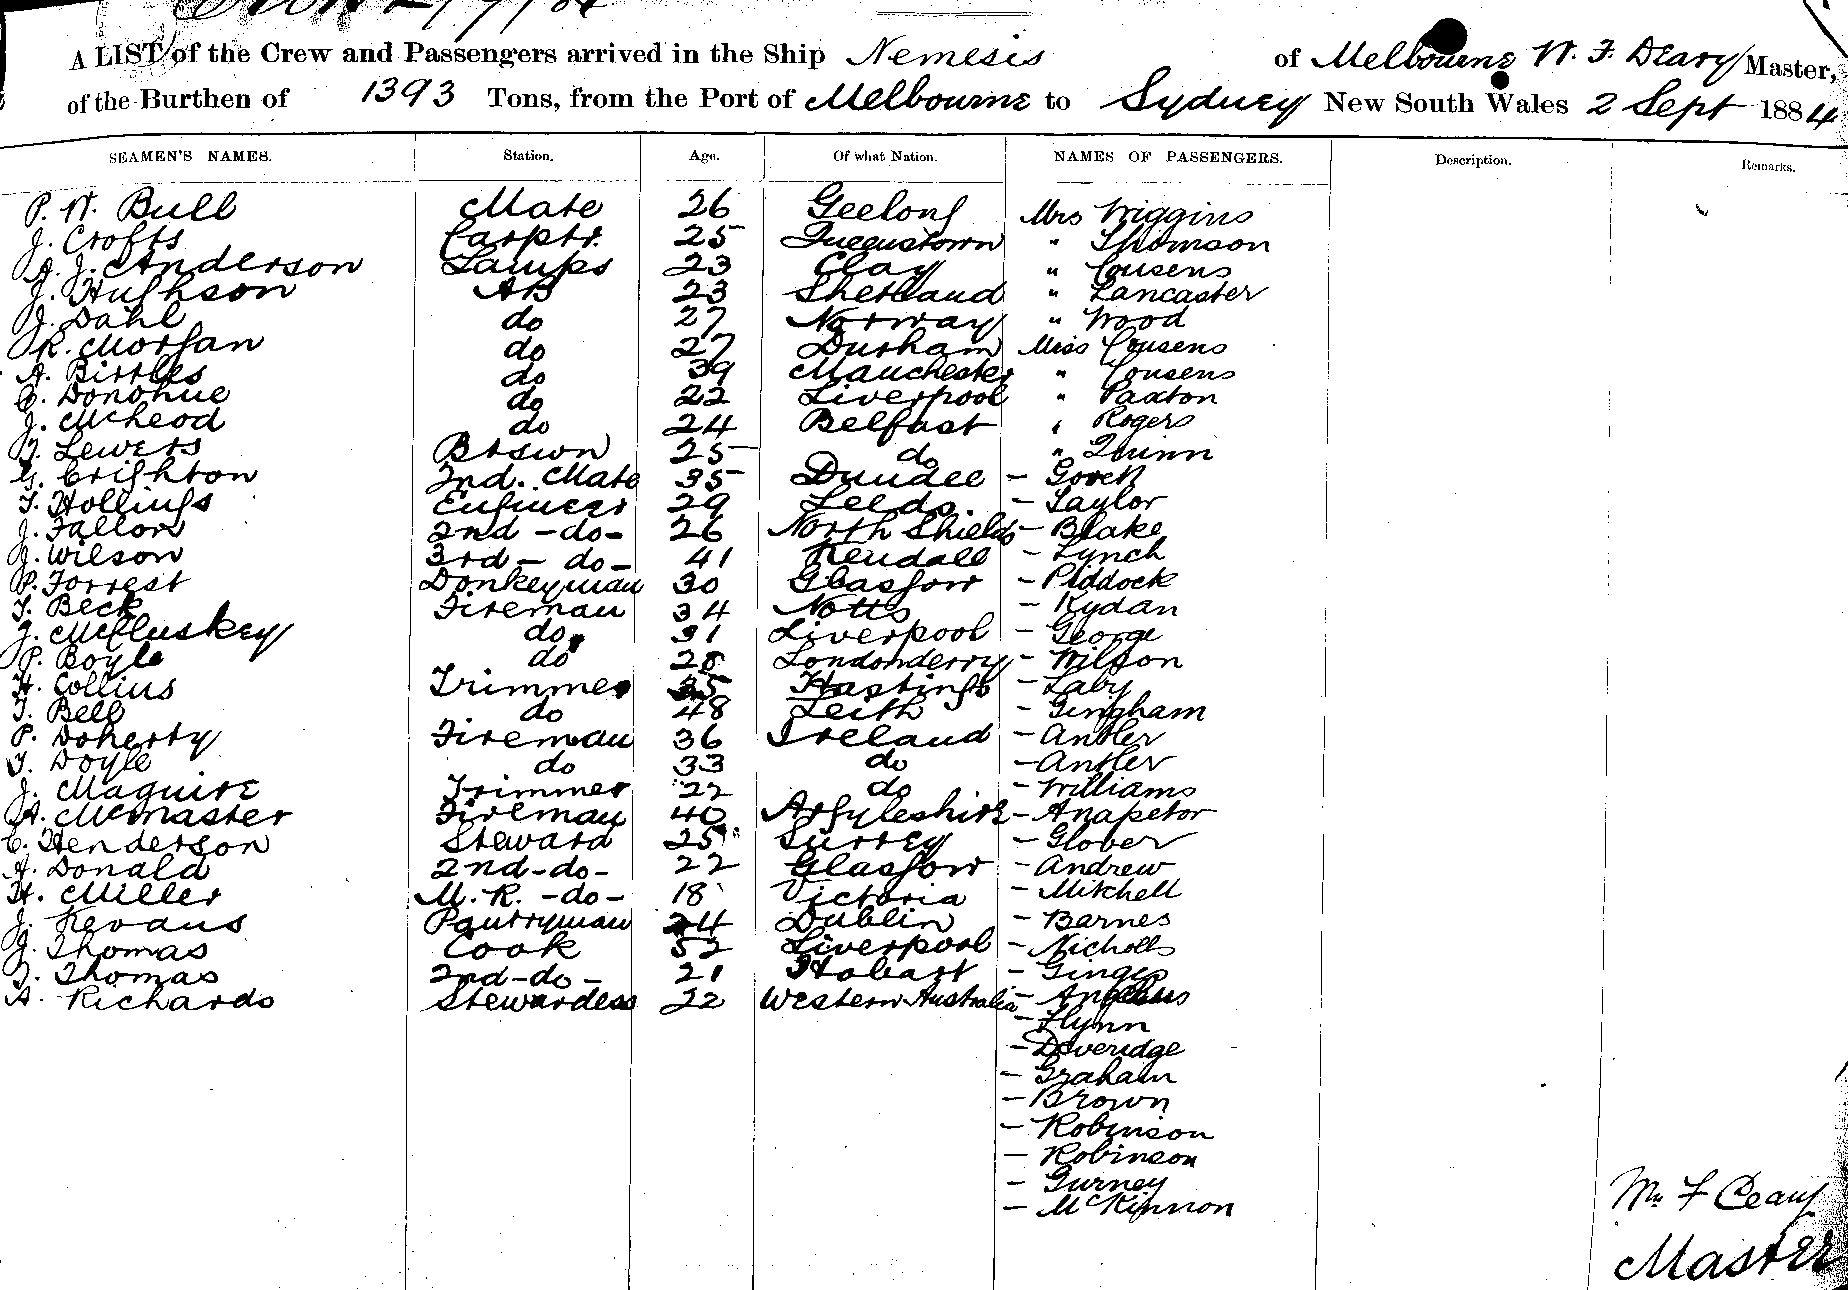 A LIST of the Crew and Passengers arrived in the Ship Nemesis of Melbourne W. F. Deary Master,
of the Burthen of 1393 Tons, from the Port of Melbourne to Sydney New South Wales 2 Sept 1884
SEAMEN'S NAMES. Station. Age. Of what Nation. NAMES OF PASSENGERS. Description. Remarks.
P. W. Bull Mate 26 Geelong Mrs Wiggins
J. Crofts Carptr. 25 Queenstown " Thomson
A. J. Anderson Lamps 23 Clay " Cousens
J. Hughson AB 23 Shetland " Lancaster
J. Dahl do 27 Norway " Wood
R. Morgan do 27 Durham Miss Cousens
A. Birtles do 39 Manchester " Cousens
C. Donohue do 22 Liverpool " Paxton
J. McLeod do 24 Belfast " Rogers
T. Lewers Btswn 25 do " Quinn
G. Crighton 2nd. Mate 35 Dundee - Gorch
T. Hollings Engineer 29 Leeds. - Taylor
J. Fallon 2nd - do - 26 North Shields - Blake
J. Wilson 3rd - do - 41 Kendall - Lynch
P. Forrest Donkeyman 30 Glasgow - Piddock
T. Beck Fireman 34 Notts - Rydan
J. McCluskey do 31 Liverpool - George
P. Boyle do 28 Londonderry - Wilson
H. Collins Trimmer 35 Hastings - Laby
T. Bell do 48 Leith - Gingham
P. Doherty Fireman 36 Ireland - Antler
T. Doyle do 33 do - Antler
J. Maguire Trimmer 22 do - Williams
A. McMaster Fireman 40 Argyleshire - Anapetor
C. Henderson Steward 25 Surrey - Glober
A. Donald 2nd - do - 22 Glasgow - Andrew
H. Miller M. R. - do - 18 Victoria - Mitchell
J. Kevans Pantryman 24 Dublin - Barnes
J. Thomas Cook 52 Liverpool - Nicholls
T. Thomas 2nd - do - 21 Hobart - Ginger
A. Richards Stewardess 22 Western Australia -
- Flynn
- Deveridge
- Graham
- Brown
- Robinson
- Robinson
- Gurney
- McKinnon
Wm F Deary
Master